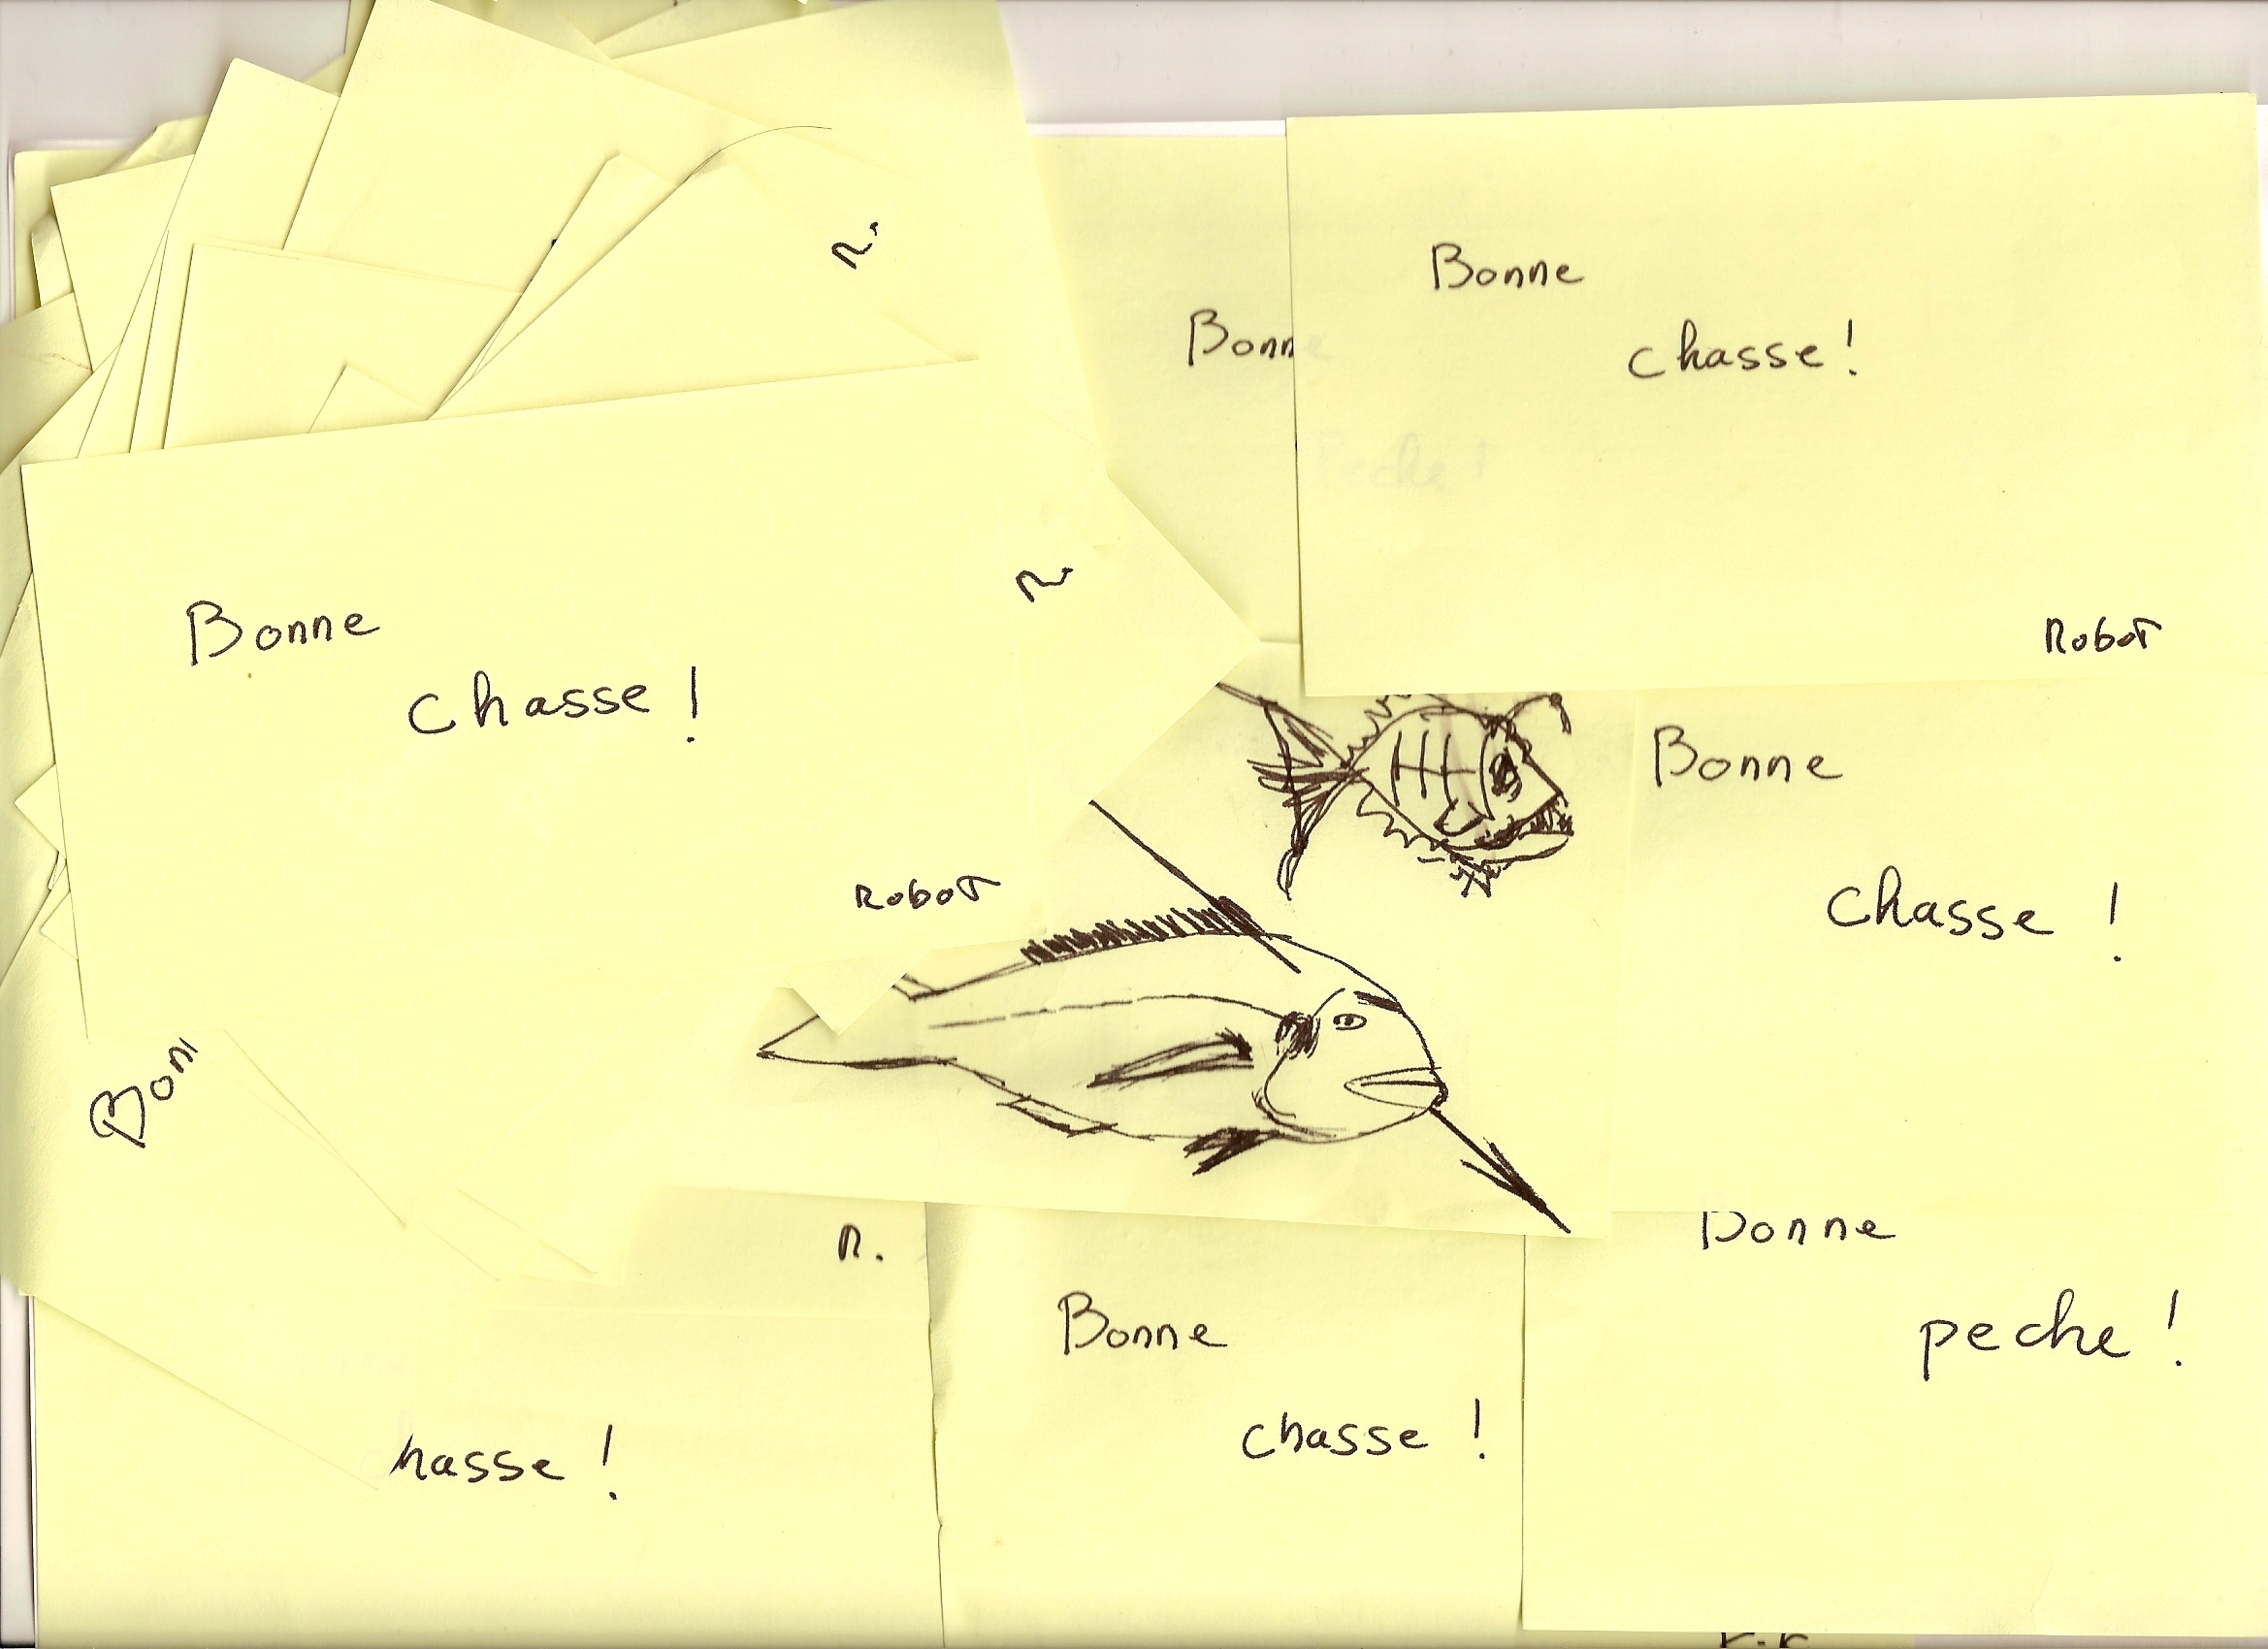 R.
Bonne
chasse !
Bonne
Peche !
R.
Bonne
chasse !
Robot
Robot
Bonne
chasse !
Bon
R.
Bonne
peche !
Bonne
chasse !
hasse !